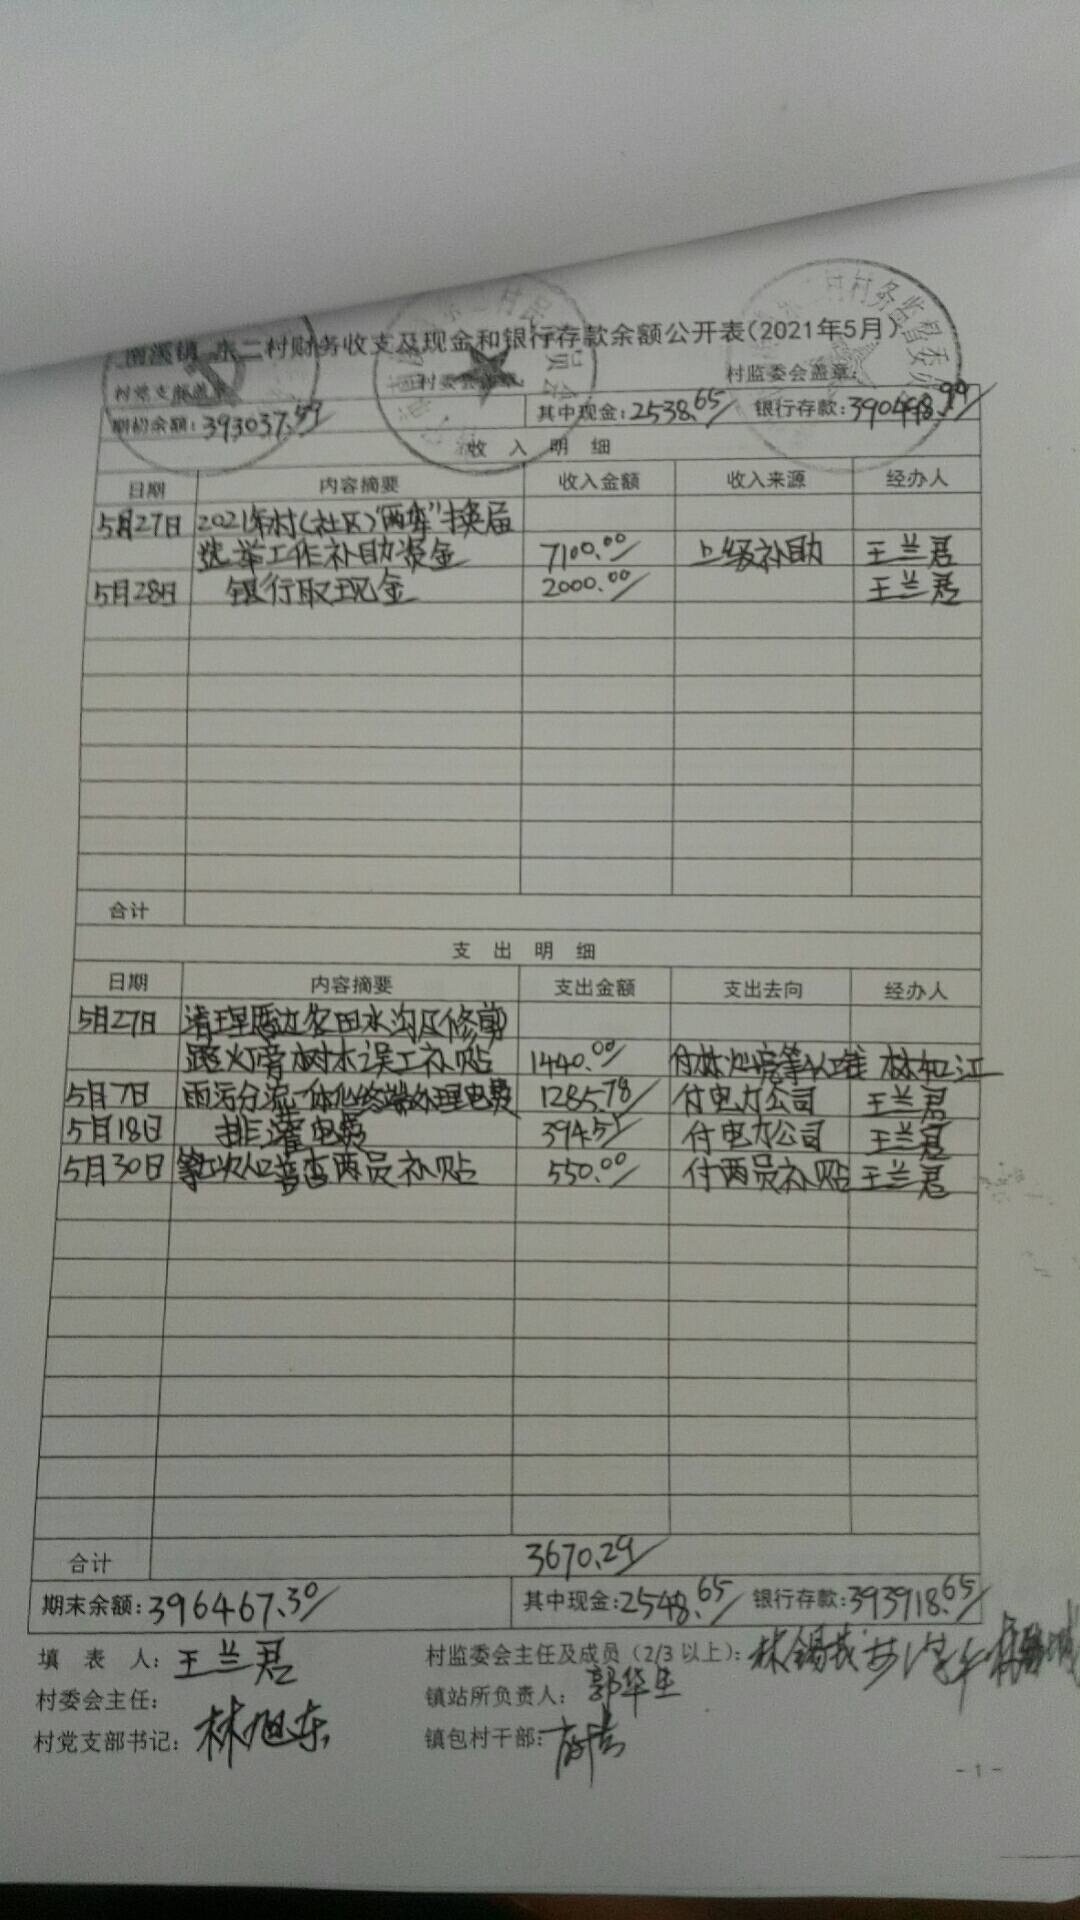 南溪镇 东二村财务收支及现金和银行存款余额公开表(2021年5月)
村党支部盖章 村委会盖章 村监委会盖章:
期初余额:393037.59 其中现金:2538.65 银行存款:390498.94
收 入 明 细
日期 内容摘要 收入金额 收入来源 经办人
5月27日 2021年村(社区)"两委"换届
选举工作补助资金 7100.00 上级补助 王兰君
5月28日 银行取现金 2000.00 王兰君
合计
支 出 明 细
日期 内容摘要 支出金额 支出去向 经办人
5月27日 清理周边农田水沟及修剪
路灯旁树木误工补贴 1440.00 付林 等 林如江
5月7日 雨污分流一体化终端处理电费 1285.78 付电力公司 王兰君
5月18日 排灌电费 394.51 付电力公司 王兰君
5月30日 第七次人口普查两员补贴 550.00 付两员补贴 王兰君
合计 3670.29
期末余额:396467.30 其中现金:2548.65 银行存款:393918.65
填 表 人:王兰君 村监委会主任及成员(2/3以上):林锡
村委会主任: 镇站所负责人:郭华生
村党支部书记:林旭东 镇包村干部:
- 1 -